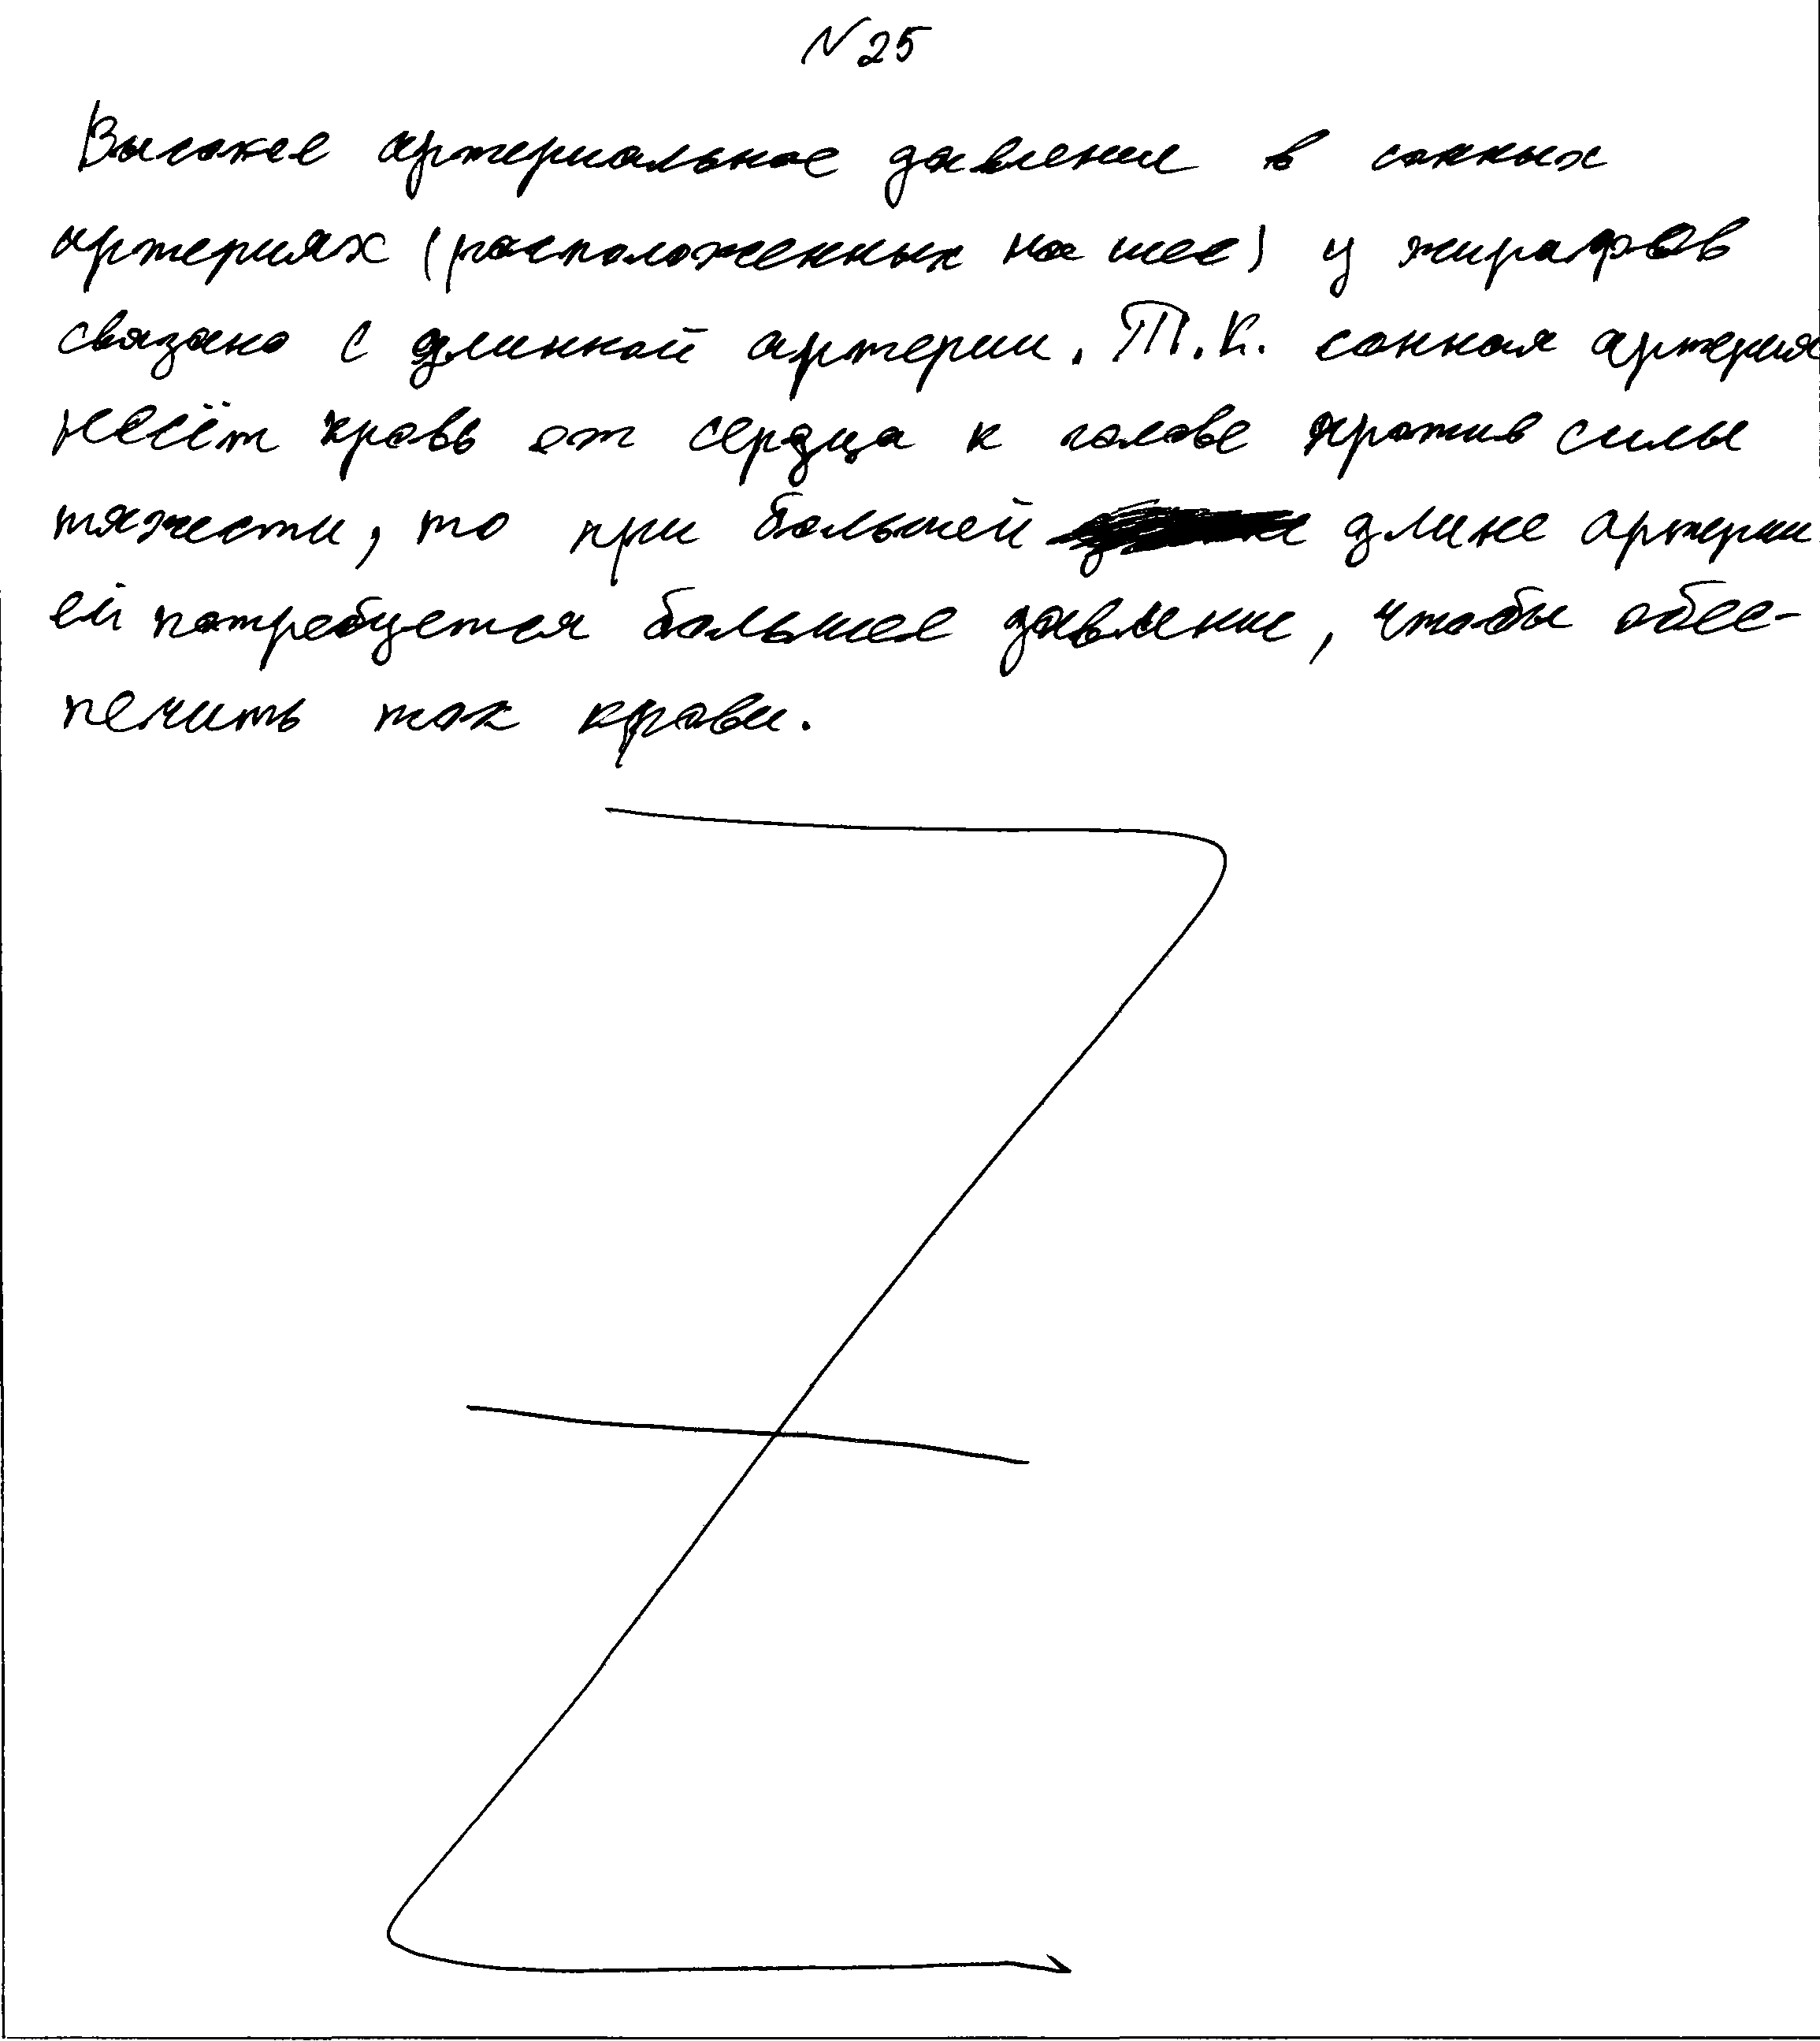 №25
Высокое артериальное давление в сонных
артериях (расположенных на шее) у жирафов
связано с длинной артерии. Т.к. сонная артерия
несёт кровь от сердца к голове против силы
тяжести, то при большей длине артерии
ей потребуется большее давление, чтобы обес-
печить ток крови.